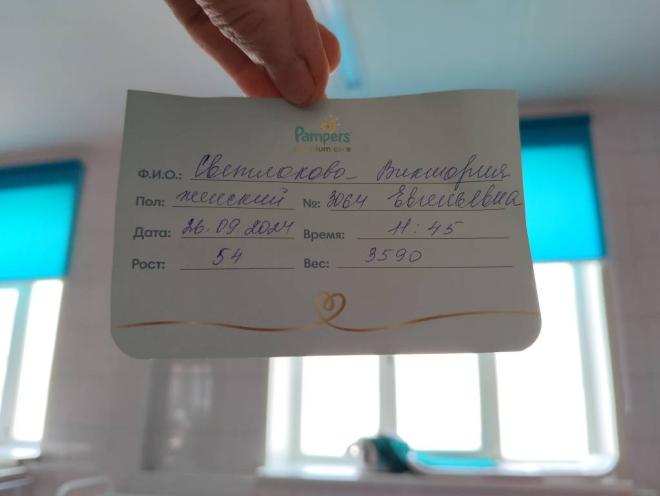 Pampers
premium care
Ф.И.О.: Светлакова Виктория
Пол: женский №: 3064 Евгеньевна
Дата: 26.09.2024 Время: 11:45
Рост: 54 Вес: 3590